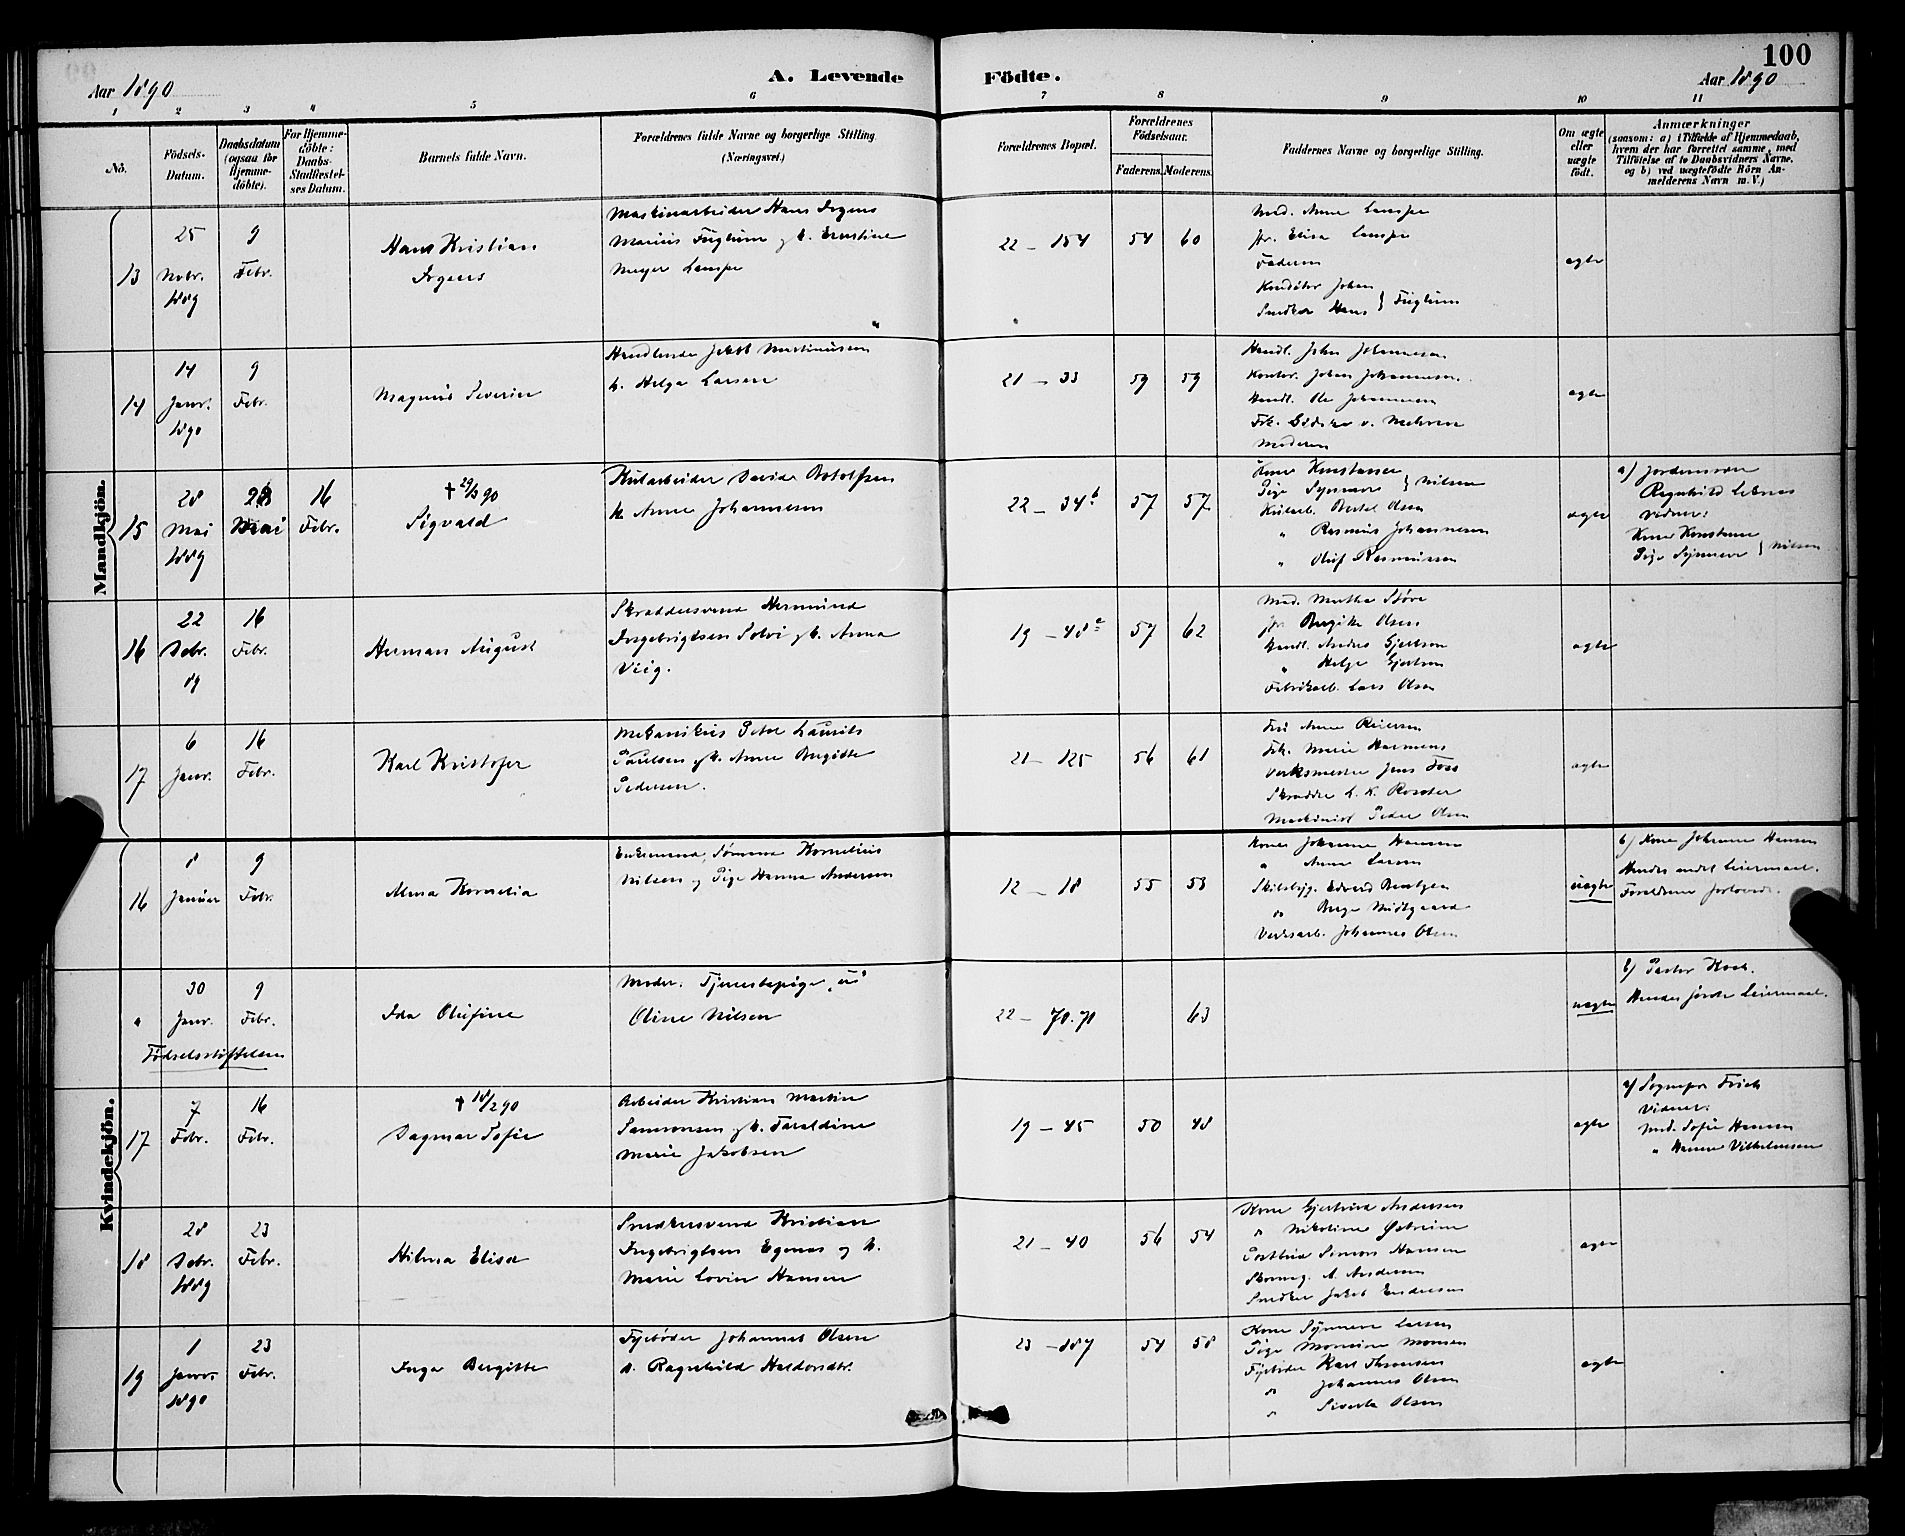 100
Aar 1890
A. Levende Födte.
Aar 1890
1 2 3 4 5 6 7 8 9 10 11
No.
Födsels-Datum.
Daabsdatum (ogsaa for Hjemme-döbte).
For Hjemme-döbte: Daabs-Stadfæstel-ses Datum.
Barnets fulde Navn.
Forældrenes fulde Navne og borgerlige Stilling (Næringsvei.)
Forældrenes Bopæl.
Forældrenes Födselsaar.
Faderens. Moderens.
Faddernes Navne og borgerlige Stilling.
Om ægte eller uægte födt.
Anmærkninger
(saasom: a) i Tilfælde af Hjemmedaab, hvem der har forrettet samme, med Tilföielse af to Daabsvidners Navne, og b) ved uægtefödte Börn An-melderens Navn m. V.)
Mandkjön.
13
25 Nobr. 1889
9 Febr.
Hans Kristian
Irgens
Maskinarbeider Hans Irgens
Marius Fuglum og h. Ernstine
Meyer
22 - 154
54 60
Mad. Anne
fr. Elisa
Faderen
Konditor Johan
Snedker Hans } Fuglum
ægte
14
14 Janr. 1890
9 Febr.
Magnus Severin
Handlende Jakob Martinusen
h. Helga Larsen
21 - 33
59 59
Handl. John Johannesen
Kontor. Johan Johannesen.
Handl. Ole Johannesen
Frk. v.
Moderen
ægte
15
28 Mai 1889
28 Mai
16 Febr.
† 29/3 90
Sigvald
Kularbeider David Botolfsen
h. Anne Johannesen
22 - 34 b
57 57
Kone Konstanse
Pige Synneve } Nilsen
Kularb. Bertel Olsen
" Rasmus Johannesen
" Oluf Rasmussen
ægte
a) Jordemoder
Ragnhild
Vidner:
Kone Konstanse
Pige Synneve } Nilsen
16
22 Debr. 89
16 Febr.
Herman August
Skræddersvend Hermund
Ingebrigtsen Solvi og h. Anna
Viig.
19 - 48 a
57 62
Mad. Martha Störe
fr. Birgitte Olsen
Handl. Anders Gjertsen
" Helge Gjertsen
Fabrikarb. Lars Olsen
ægte
17
6 Janr.
16 Febr.
Karl Kristofer
Mekanikus Peter Laurits
Paulsen og h. Anne Birgitte
Pedersen.
21 - 125
56 61
Fru Anne Reiersen
Frk. Marie Harmens
Verksmester Jens Foss
Skrædder L. K.
Maskinist Peder Olsen
ægte
Kvindekjön.
16
8 Januar
9 Febr.
Alma Kornelia
Enkemand, Tömmerm. Kornelius
Nilsen og Pige Hanna Andersen
12 - 18
55 53
Kone Johanne Hansen
" Anne Larsen
Skibsbyg. Edvard Bentzen
" Berge Midtgaard
Verksarb. Johannes Olsen
uægte
b) Kone Johanne Hansen
Hendes andet Leiermaal.
Forældrene forlovede.
"
30 Janr.
9 Febr.
Födselsstiftelsen
Ida Olufine
Moder: Tjenestepige
Oline Nilsen
22 - 70.71
63
uægte
b) Pastor Koch.
Hendes förste Leiermaal.
17
7 Febr.
16 Febr.
† 18/2 90
Dagmar Sofie
Arbeider Kristian Martin
Samuonsen og h. Taraldine
Marie Jakobsen
19 - 45
50 48
ægte
a) Sognepr. Frich
Vidner:
Mad. Sofie Hansen
" Hanne Vilhelmsen
18
28 Debr. 1889
23 Febr.
Hilma Elisa
Snedkersvend Kristian
Ingebrigtsen Egenes og h.
Marie Lovise Hansen
21 - 40
56 54
Kone Gjertrud Andersen
" Nikoline Östreim
Postbud Simon Hansen
Skomag. A. Andersen
Snedker Jakob Endresen
ægte
19
1 Janr. 1890
23 Febr.
Inga Bergitte
Fyrböder Johannes Olsen
h. Ragnhild Haldorsdtr.
23 - 187
54 58
Kone Synneve Larsen
Pige Monsen
Fyrböder Karl Thomsen
" Johannes Olsen
" Sivert Olsen
ægte